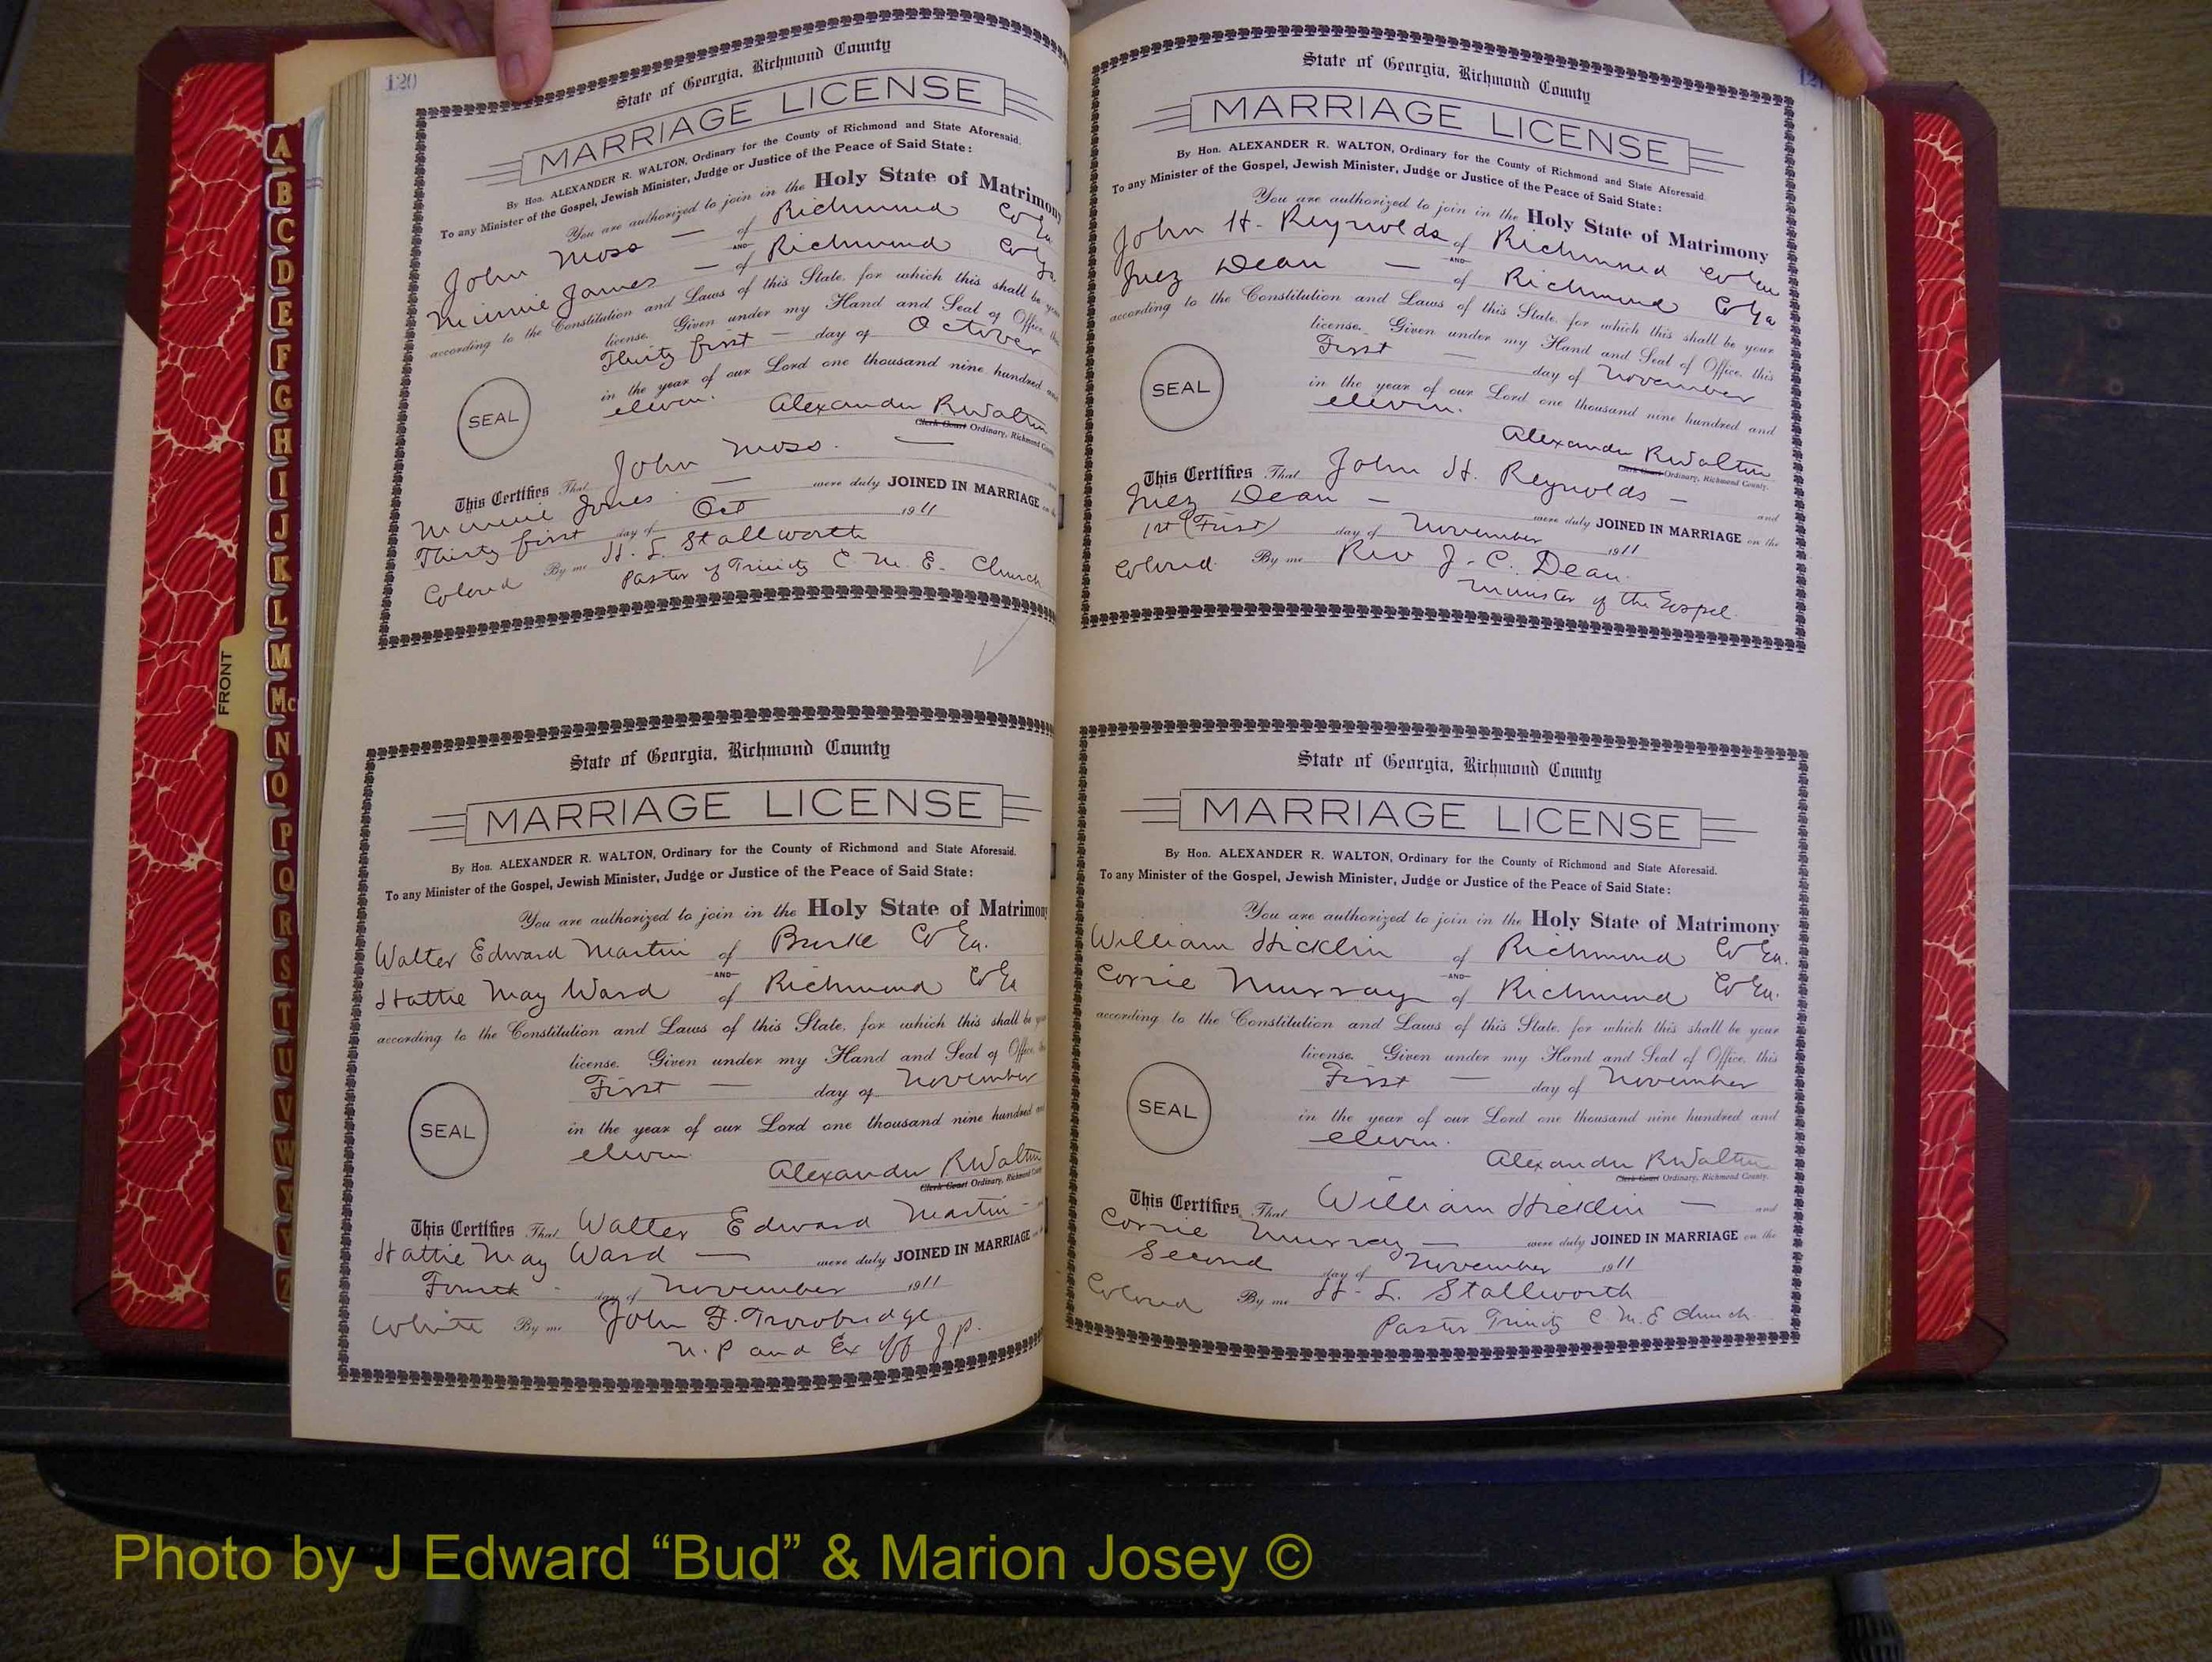 120
State of Georgia, Richmond County
MARRIAGE LICENSE
By Hon. ALEXANDER R. WALTON, Ordinary for the County of Richmond and State Aforesaid.
To any Minister of the Gospel, Jewish Minister, Judge or Justice of the Peace of Said State:
You are authorized to join in the Holy State of Matrimony
John Moss — of Richmond Co Ga
AND
Minnie James — of Richmond Co Ga
according to the Constitution and Laws of this State, for which this shall be your
license. Given under my Hand and Seal of Office, this
Thirty first — day of October
in the year of our Lord one thousand nine hundred and
eleven.
SEAL
Alexander R Walton
Clerk Court Ordinary, Richmond County
This Certifies That John Moss. —
Minnie Jones — were duly JOINED IN MARRIAGE on the
Thirty first day of Oct 1911
Colored By me H. L. Stallworth
Pastor of Trinity C. M. E. Church
State of Georgia, Richmond County
MARRIAGE LICENSE
By Hon. ALEXANDER R. WALTON, Ordinary for the County of Richmond and State Aforesaid.
To any Minister of the Gospel, Jewish Minister, Judge or Justice of the Peace of Said State:
You are authorized to join in the Holy State of Matrimony
Walter Edward Martin of Burke Co Ga.
AND
Hattie May Ward of Richmond Co Ga
according to the Constitution and Laws of this State, for which this shall be your
license. Given under my Hand and Seal of Office, this
First — day of November
in the year of our Lord one thousand nine hundred and
eleven
SEAL
Alexander R Walton
Clerk Court Ordinary, Richmond County
This Certifies That Walter Edward Martin —
Hattie May Ward — were duly JOINED IN MARRIAGE
Fourth day of November 1911
White By me John F. Trowbridge
N. P and Ex off J. P.
121
State of Georgia, Richmond County
MARRIAGE LICENSE
By Hon. ALEXANDER R. WALTON, Ordinary for the County of Richmond and State Aforesaid.
To any Minister of the Gospel, Jewish Minister, Judge or Justice of the Peace of Said State:
You are authorized to join in the Holy State of Matrimony
John H. Reynolds of Richmond Co Ga
AND
Inez Dean — of Richmond Co Ga
according to the Constitution and Laws of this State, for which this shall be your
license. Given under my Hand and Seal of Office, this
First — day of November
in the year of our Lord one thousand nine hundred and
eleven.
SEAL
Alexander R Walton
Clerk Court Ordinary, Richmond County.
This Certifies That John H. Reynolds — and
Inez Dean — were duly JOINED IN MARRIAGE on the
1st (First) day of November 1911
Colored. By me Rev J. C. Dean.
Minister of the Gospel.
State of Georgia, Richmond County
MARRIAGE LICENSE
By Hon. ALEXANDER R. WALTON, Ordinary for the County of Richmond and State Aforesaid.
To any Minister of the Gospel, Jewish Minister, Judge or Justice of the Peace of Said State:
You are authorized to join in the Holy State of Matrimony
William Hicklin of Richmond Co Ga.
AND
Corrie Murray of Richmond Co Ga.
according to the Constitution and Laws of this State, for which this shall be your
license. Given under my Hand and Seal of Office, this
First — day of November
in the year of our Lord one thousand nine hundred and
eleven.
SEAL
Alexander R Walton
Clerk Court Ordinary, Richmond County.
This Certifies That William Hicklin — and
Corrie Murray — were duly JOINED IN MARRIAGE on the
Second day of November 1911
Colored By me H. L. Stallworth
Pastor Trinity C M. E Church
FRONT
A
B
C
D
E
F
G
H
I
J
K
L
M
Mc
N
O
P
Q
R
S
T
U
V
W
X
Y
Z
Photo by J Edward “Bud” & Marion Josey ©